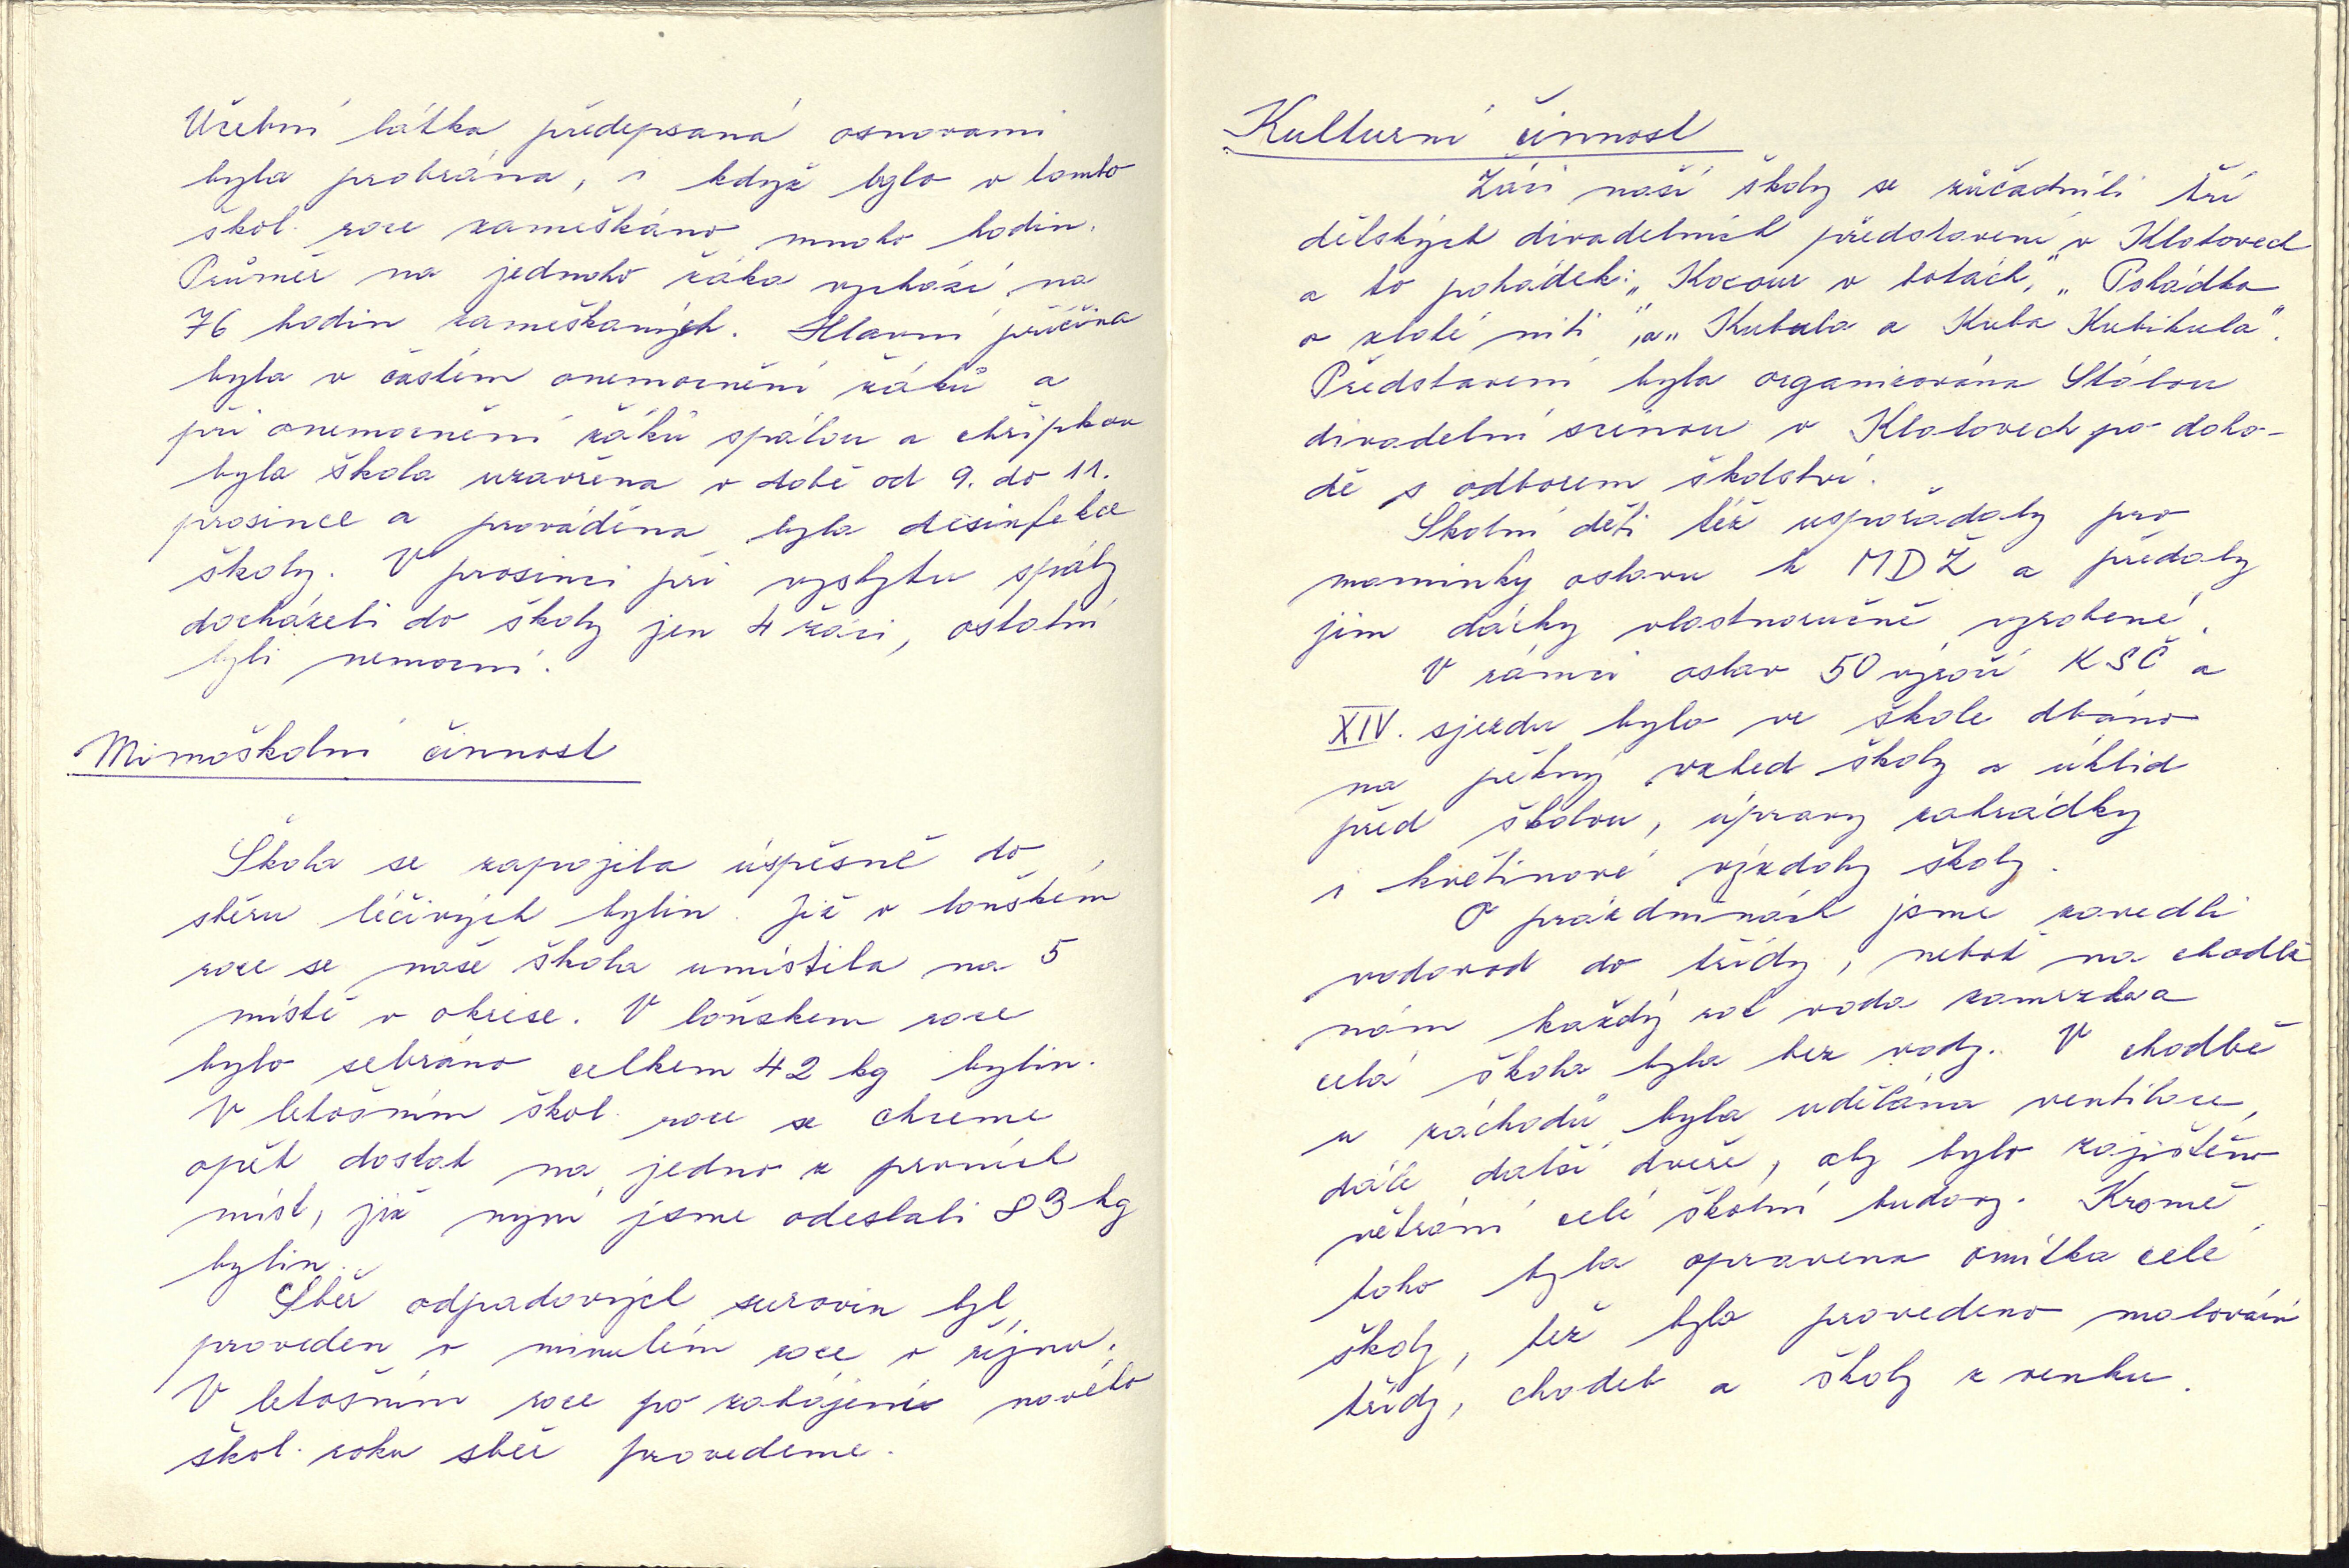 Učební látka předepsaná osnovami
byla probrána, i když bylo v tomto
škol. roce zameškáno mnoho hodin.
Průměr na jednoho žáka vychází na
76 hodin zameškaných. Hlavní příčina
byla v častém onemocnění žáků a
při onemocnění žáků spálou a chřipkou
byla škola uzavřena v době od 9. do 11.
prosince a prováděna byla desinfekce
školy. V prosinci při výskytu spály
docházeli do školy jen 4 žáci, ostatní
byli nemocní.
Mimoškolní činnost
Škola se zapojila úspěšně do
sběru léčivých bylin. Již v loňském
roce se naše škola umístila na 5
místě v okrese. V loňskem roce
bylo sebráno celkem 42 kg bylin.
V letošním škol. roce se chceme
opět dostat na jedno z prvních
míst, již nyní jsme odeslali 83 kg
bylin.
Sběr odpadových surovin byl
proveden v minulém roce v říjnu.
V letošním roce po zahájení nového
škol. roku sběr provedeme.
Kulturní činnost
Žáci naší školy se zůčastnili tří
dětských divadelních představení v Klatovech
a to pohádek: „Kocour v botách," „Pohádka
o zlaté niti" „a „Kubula a Kuba Kubikula".
Představení byla organizována Stálou
divadelní scénou v Klatovech po doho-
dě s odborem školství.
Školní děti též uspořádaly pro
maminky oslavu k MDŽ a předaly
jim dárky vlastnoručně vyrobené.
V rámci oslav 50 výročí KSČ a
XIV. sjezdu bylo ve škole dbáno
na pěkný vzhled školy a úklid
před školou, úpravy zahrádky
i květinové výzdoby školy.
O prázdninách jsme zavedli
vodovod do třídy, neboť na chodbě
nám každý rok voda zamrzla a
celá škola byla bez vody. V chodbě
u záchodů byla udělána ventilace,
dále další dveře, aby bylo zajištěno
větrání celé školní budovy. Kromě
toho byla opravena omítka celé
školy, též bylo provedeno malování
třídy, chodeb a školy z venku.